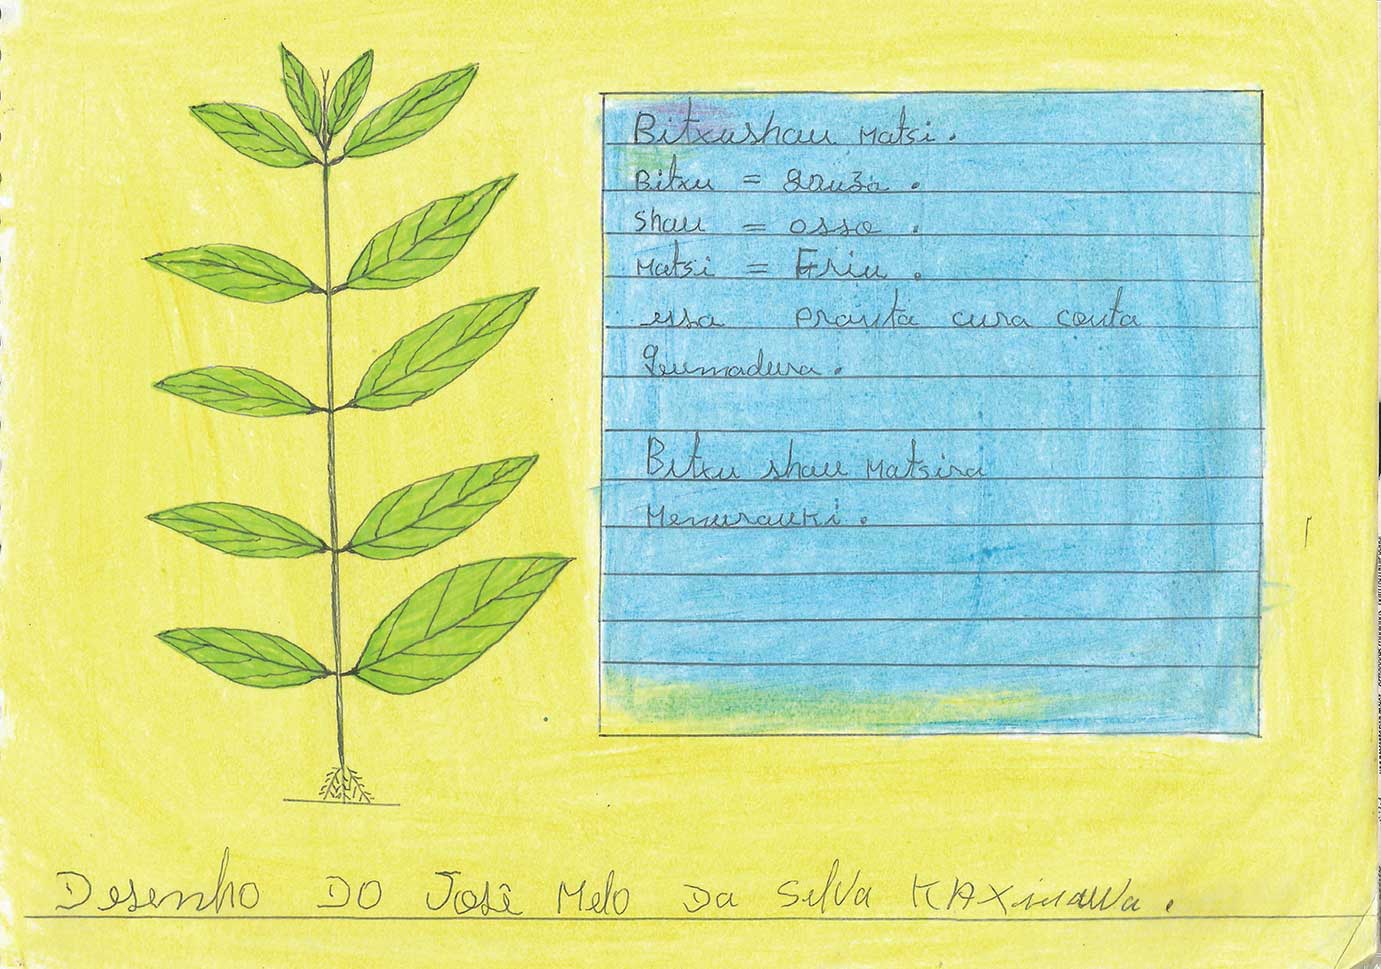 Bitxushau Matsi .
Bitxu = .
shau = osso .
Matsi = Friu .
essa pranta cura conta
Qeumadura .
Bitxu shau Matsira
Menurauki .
Desenho DO José Melo Da Silva KAXinawa .